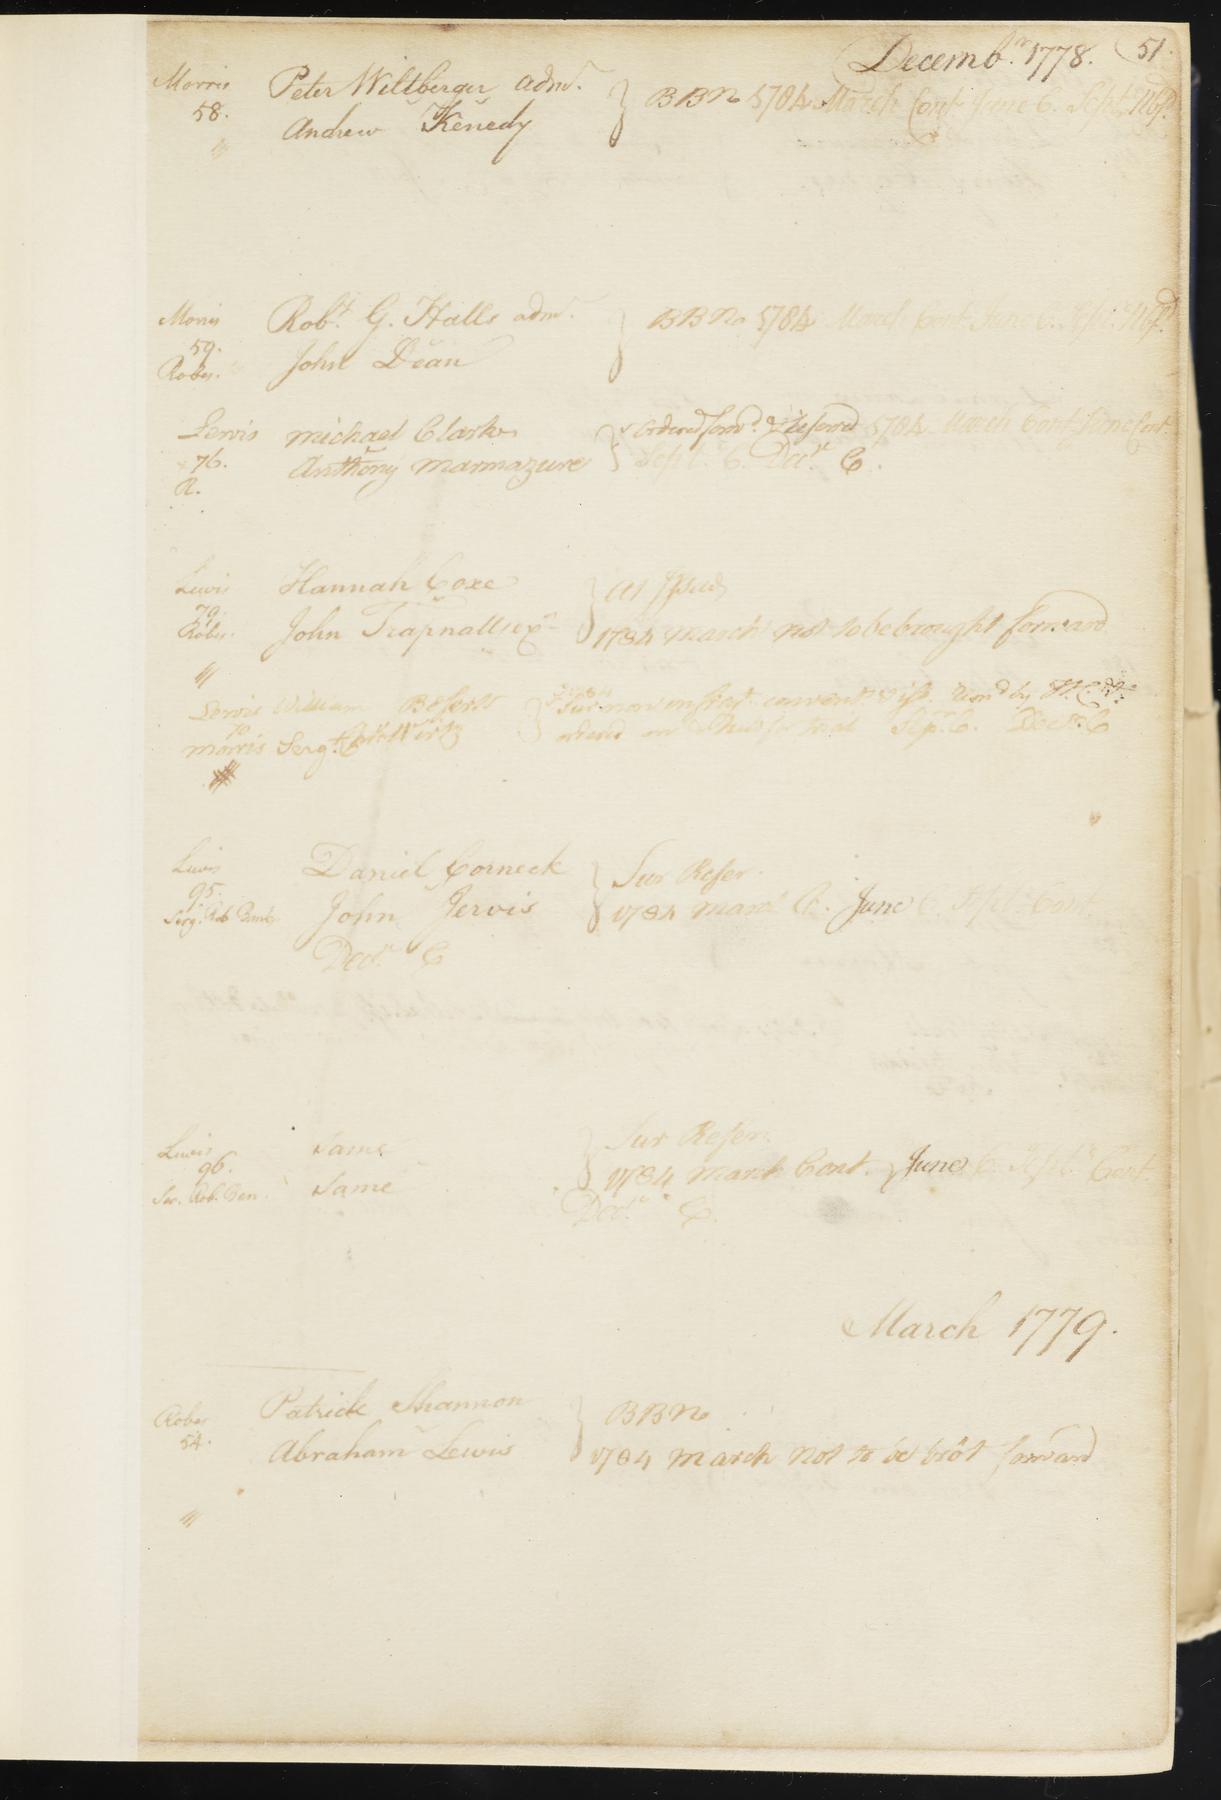 Decemb.r 1778. 51.
Morris Peter Wiltberger adm.r } BBNo 1784 March Cont June C. Sept.
58. v
Andrew Kenedy
Morris Rob.t G. Halls adm.r } BBNo 1784 March Cont June C.
59. v
Rober. John Dean
Lewis Michael Clarke } Ordered forw.d & Refered 1784 March Cont June Cont.
76. v Sept.r C. Dec.r C.
R. Anthony Marmazure
Lewis Hannah Coxe }
79. v
Rober. John Trapnalls ex.r 1784 March not to be brought forward
Lewis William
70 v ordered on for trial Sep.r C. Dec.r C
Morris Serg.t
Lewis Daniel Corneck } Sur Refer.
95. v
Serg. Rob John Jervis 1784 Mar. C. June C Sept.r Cont
Dec.r C
Lewis Same } Sur Refer.
96. v
Ser. Rob. Ben. Same 1784 March Cont. June C Sept.r Cont.
Dec.r C.
March 1779.
Rober Patrick Shannon } BBNo
54. v
Abraham Lewis 1784 March not to be brôt forward